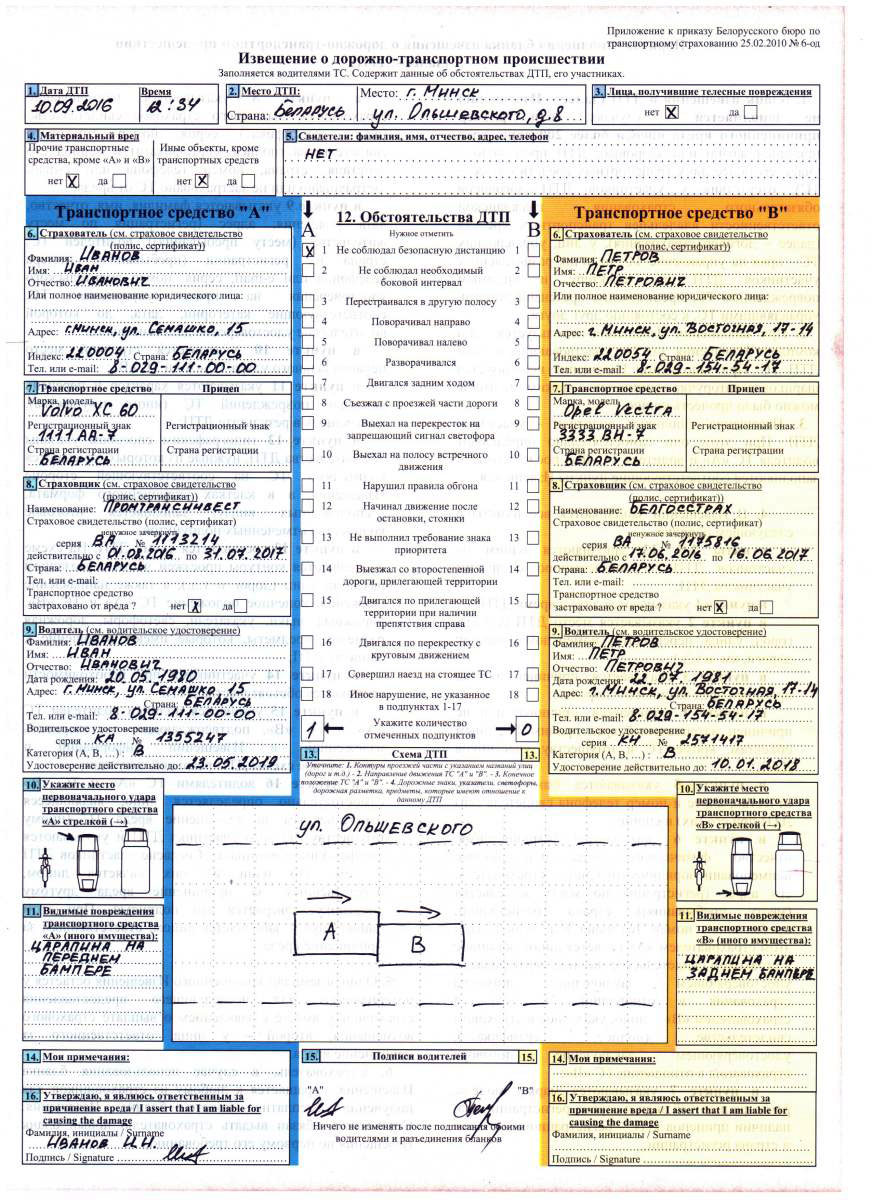 Приложение к приказу Белорусского бюро по
транспортному страхованию 25.02.2010 № 6-од
Извещение о дорожно-транспортном происшествии
Заполняется водителями ТС. Содержит данные об обстоятельствах ДТП, его участниках.
1. Дата ДТП Время
10.09.2016 12:34
2. Место ДТП: Место: г. Минск
Страна: Беларусь ул. Ольшевского, д.8
3. Лица, получившие телесные повреждения
нет X да
4. Материальный вред
Прочие транспортные средства, кроме «А» и «В»
нет X да
Иные объекты, кроме транспортных средств
нет X да
5. Свидетели: фамилия, имя, отчество, адрес, телефон
НЕТ
Транспортное средство "А"
6. Страхователь (см. страховое свидетельство
(полис, сертификат))
Фамилия: Иванов
Имя: Иван
Отчество: Иванович
Или полное наименование юридического лица:
Адрес: г.Минск, ул. Семашко, 15
Индекс: 220004 Страна: Беларусь
Тел. или e-mail: 8-029-111-00-00
7. Транспортное средство Прицеп
Марка, модель
Volvo XC 60
Регистрационный знак Регистрационный знак
1111 АА-7
Страна регистрации Страна регистрации
Беларусь
8. Страховщик (см. страховое свидетельство
(полис, сертификат))
Наименование: Промтрансинвест
Страховое свидетельство (полис, сертификат)
ненужное зачеркнуть
серия ВА № 1113214
действительно с 01.08.2016 по 31.07.2017
Страна: Беларусь
Тел. или e-mail:
Транспортное средство
застраховано от вреда ? нет X да
9. Водитель (см. водительское удостоверение)
Фамилия: Иванов
Имя: Иван
Отчество: Иванович
Дата рождения: 20.05.1980
Адрес: г.Минск, ул. Семашко 15
Страна: Беларусь
Тел. или e-mail: 8-029-111-00-00
Водительское удостоверение
серия КА № 1355247
Категория (А, В, ...) : В
Удостоверение действительно до: 23.05.2019
10. Укажите место
первоначального удара
транспортного средства
«А» стрелкой (→)
11. Видимые повреждения
транспортного средства
«А» (иного имущества):
Царапина на
переднем
бампере
14. Мои примечания:
16. Утверждаю, я являюсь ответственным за
причинение вреда / I assert that I am liable for
causing the damage
Фамилия, инициалы / Surname
Иванов И.И.
Подпись / Signature
12. Обстоятельства ДТП
А Нужное отметить В
X 1 Не соблюдал безопасную дистанцию 1
2 Не соблюдал необходимый 2
боковой интервал
3 Перестраивался в другую полосу 3
4 Поворачивал направо 4
5 Поворачивал налево 5
6 Разворачивался 6
7 Двигался задним ходом 7
8 Съезжал с проезжей части дороги 8
9 Выехал на перекресток на 9
запрещающий сигнал светофора
10 Выехал на полосу встречного 10
движения
11 Нарушил правила обгона 11
12 Начинал движение после 12
остановки, стоянки
13 Не выполнил требование знака 13
приоритета
14 Выезжал со второстепенной 14
дороги, прилегающей территории
15 Двигался по прилегающей 15
территории при наличии
препятствия справа
16 Двигался по перекрестку с 16
круговым движением
17 Совершил наезд на стоящее ТС 17
18 Иное нарушение, не указанное 18
в подпунктах 1-17
1 Укажите количество 0
отмеченных подпунктов
13. Схема ДТП 13.
Уточните: 1. Контуры проезжей части с указанием названий улиц
(дорог и т.д.) - 2. Направление движения ТС "А" и "В". - 3. Конечное
положение ТС "А" и "В". - 4. Дорожные знаки, указатели, светофоры,
дорожная разметка, предметы, которые имеют отношение к
данному ДТП
ул. Ольшевского
А
В
15. Подписи водителей 15.
"А" "В"
Ничего не изменять после подписания обоими
водителями и разъединения бланков
Транспортное средство "В"
6. Страхователь (см. страховое свидетельство
(полис, сертификат))
Фамилия: Петров
Имя: Петр
Отчество: Петрович
Или полное наименование юридического лица:
Адрес: г. Минск, ул. Восточная, 17-14
Индекс: 220054 Страна: Беларусь
Тел. или e-mail: 8-029-154-54-17
7. Транспортное средство Прицеп
Марка, модель
Opel Vectra
Регистрационный знак Регистрационный знак
3333 ВН-7
Страна регистрации Страна регистрации
Беларусь
8. Страховщик (см. страховое свидетельство
(полис, сертификат))
Наименование: Белгосстрах
Страховое свидетельство (полис, сертификат)
ненужное зачеркнуть
серия ВА № 1175816
действительно с 17.06.2016 по 16.06.2017
Страна: Беларусь
Тел. или e-mail:
Транспортное средство
застраховано от вреда ? нет X да
9. Водитель (см. водительское удостоверение)
Фамилия: Петров
Имя: Петр
Отчество: Петрович
Дата рождения: 22.07.1981
Адрес: г.Минск, ул. Восточная, 17-14
Страна: Беларусь
Тел. или e-mail: 8-029-154-54-17
Водительское удостоверение
серия КН № 2571417
Категория (А, В, ...) : В
Удостоверение действительно до: 10.01.2018
10. Укажите место
первоначального удара
транспортного средства
«В» стрелкой (→)
11. Видимые повреждения
транспортного средства
«В» (иного имущества):
Царапина на
заднем бампере
14. Мои примечания:
16. Утверждаю, я являюсь ответственным за
причинение вреда / I assert that I am liable for
causing the damage
Фамилия, инициалы / Surname
Подпись / Signature